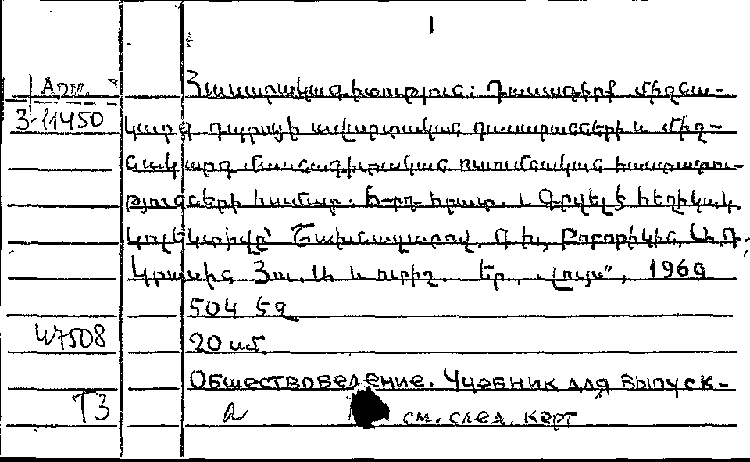 1
Арм. Հասարակագիտություն: Դասագիրք միջնա-
3-11450 կարգ դպրոցի ավարտական դասարանների և միջ-
նակարգ մասնագիտական ուսումնական հաստատու-
թյունների համար: 6-րդ հրատ. Գրվել է հեղինակ.
կոլեկտիվը՝ Շախնազարով Գ. Խ., Բոբորիկին Ա. Դ.,
Կրասին Յու. Ա. և ուրիշ. Եր., „Լույս", 1969
504 էջ
47508 20 սմ.
Обществоведение. Учебник для выпуск-
Т3 а см. след. карт